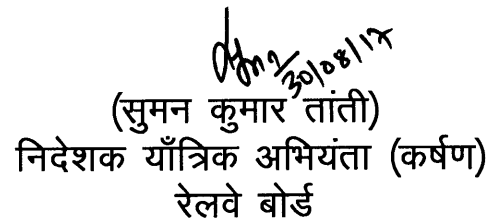 30/08/17
(सुमन कुमार तांती)
निदेशक याँत्रिक अभियंता (कर्षण)
रेलवे बोर्ड